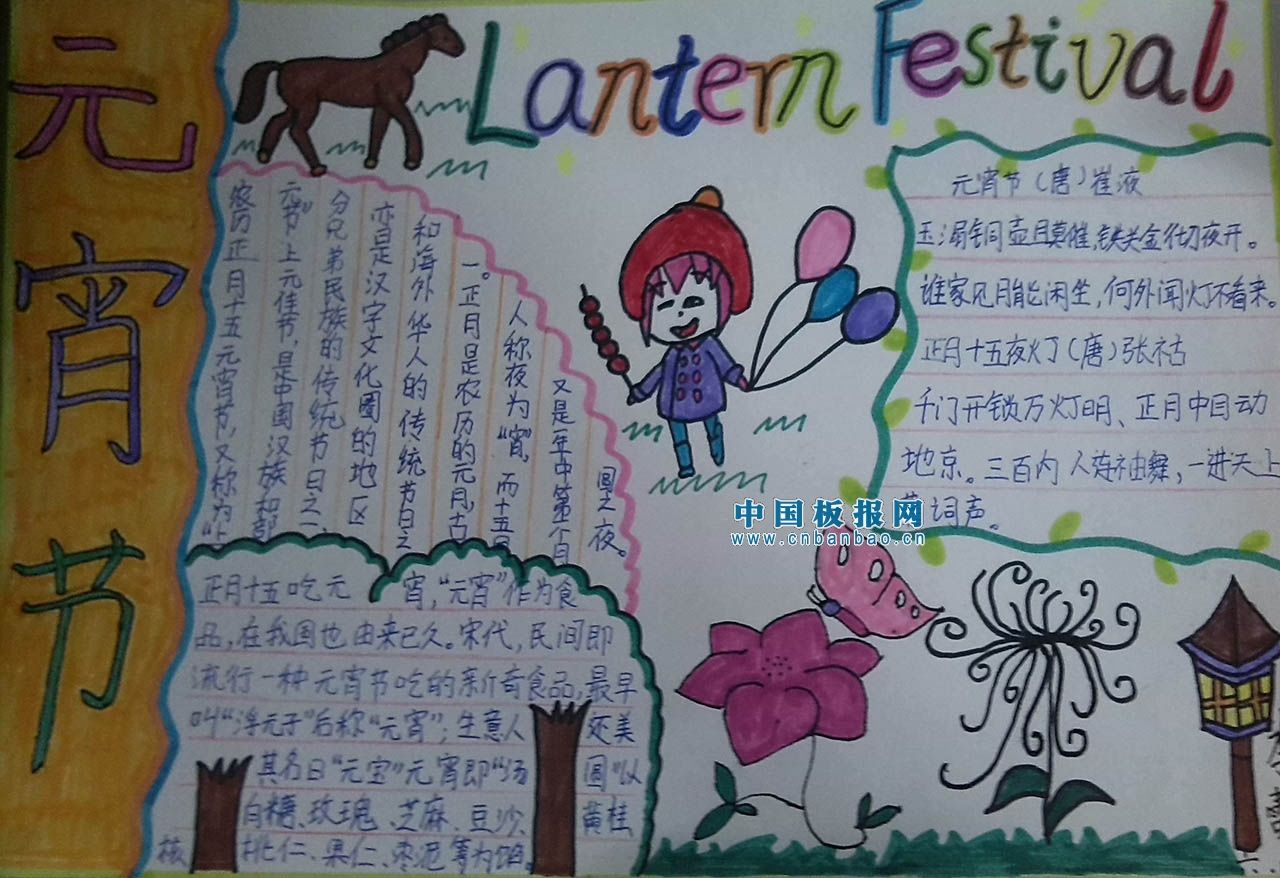 元宵节
Lantern Festival
农历正月十五元宵节,又称为“上
元节”上元佳节,是中国汉族和部
分兄弟民族的传统节日之一、
亦是汉字文化圈的地区
和海外华人的传统节日之
一。正月是农历的元月,古
人称夜为“宵”,而十五日
又是一年中第一个月
圆之夜。
元宵节(唐)崔液
玉漏铜壶且莫催,铁关金彻夜开。
谁家见月能闲坐,何外闻灯不看来。
正月十五夜灯(唐)张祜
千门开锁万灯明、正月中旬动
地京。三百内人连袖舞,一进天上
著词声。
中国板报网
www.cnbanbao.cn
正月十五吃元宵,“元宵”作为食
品,在我国也由来已久。宋代,民间即
流行一种元宵节吃的新奇食品,最早
叫“浮元子”后称“元宵”;生意人还美
其名曰“元宝”元宵即“汤圆”以
白糖、玫瑰、芝麻、豆沙、黄桂
核桃仁、果仁、枣泥等为馅。